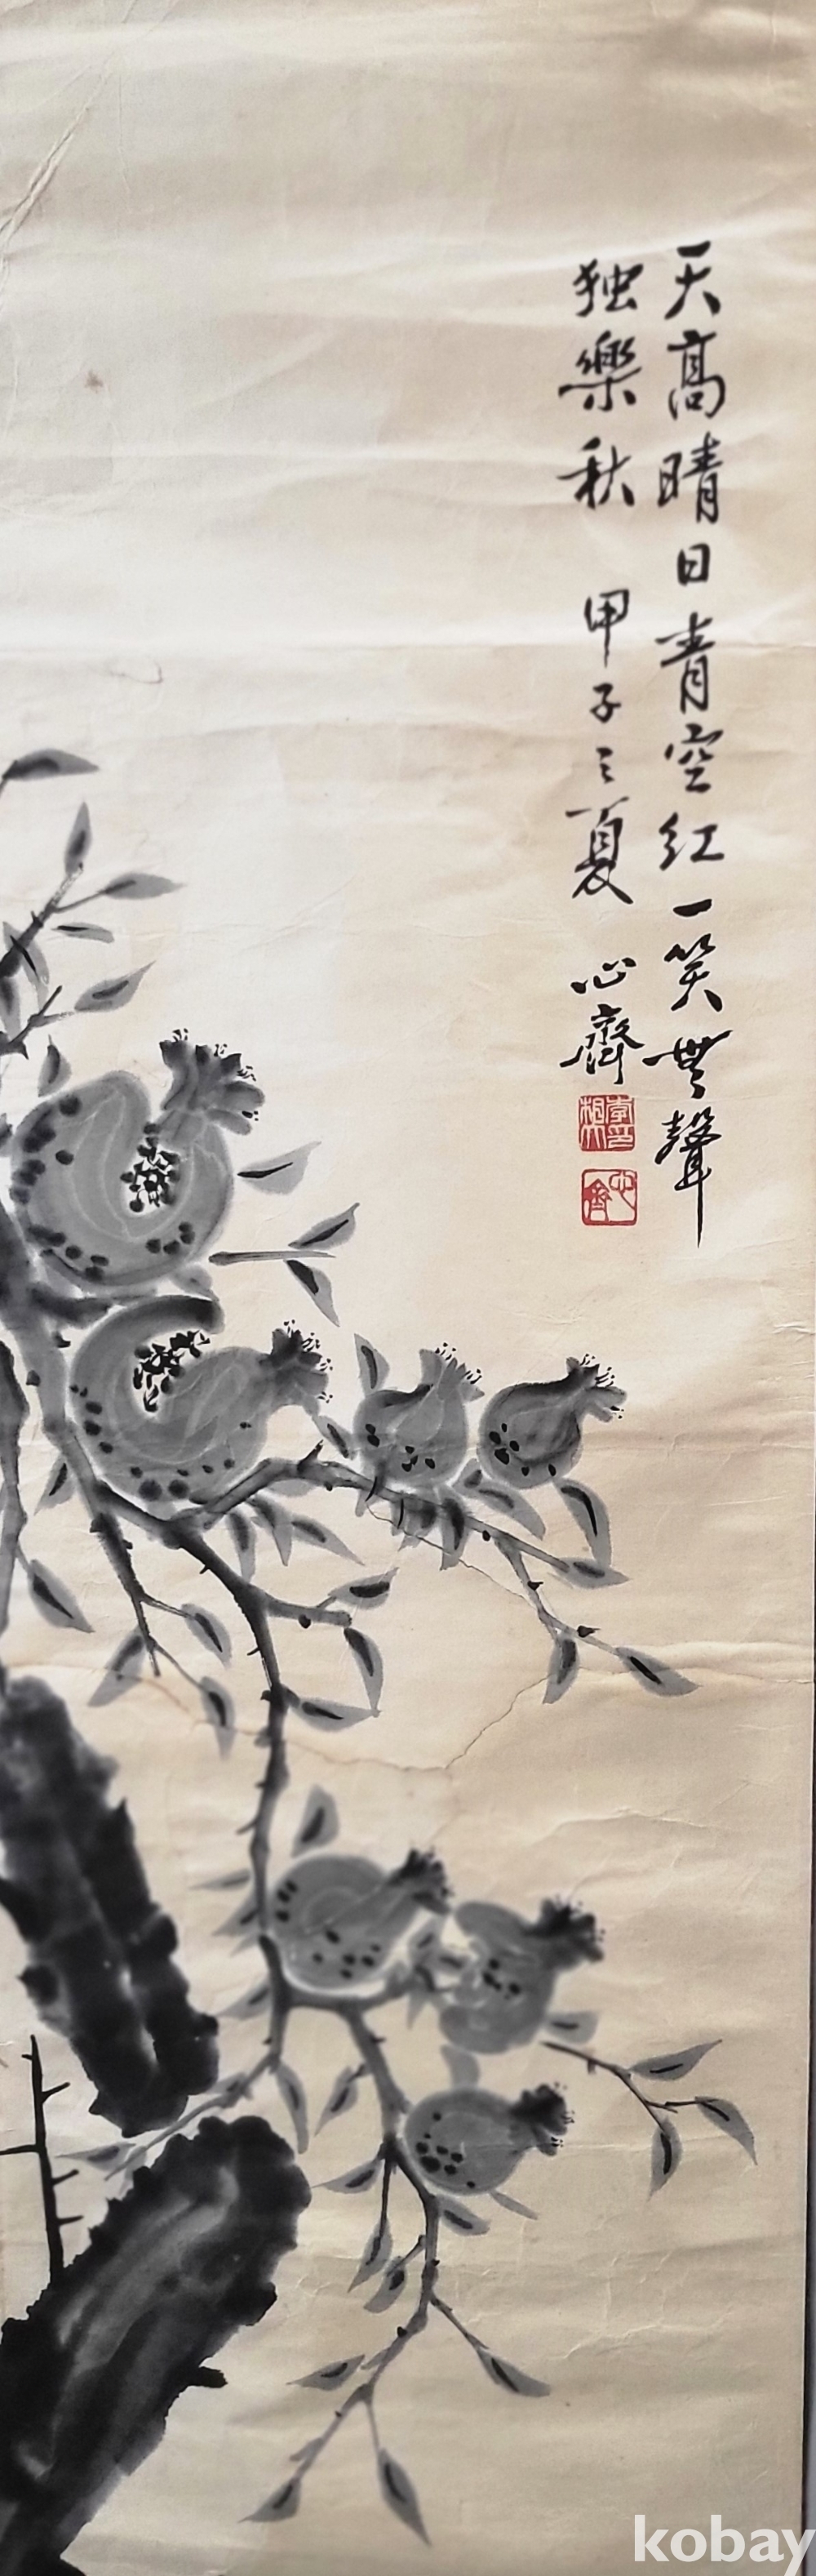 天高晴日青空红一笑無聲
独樂秋 甲子之夏 心齋
心齋
kobay